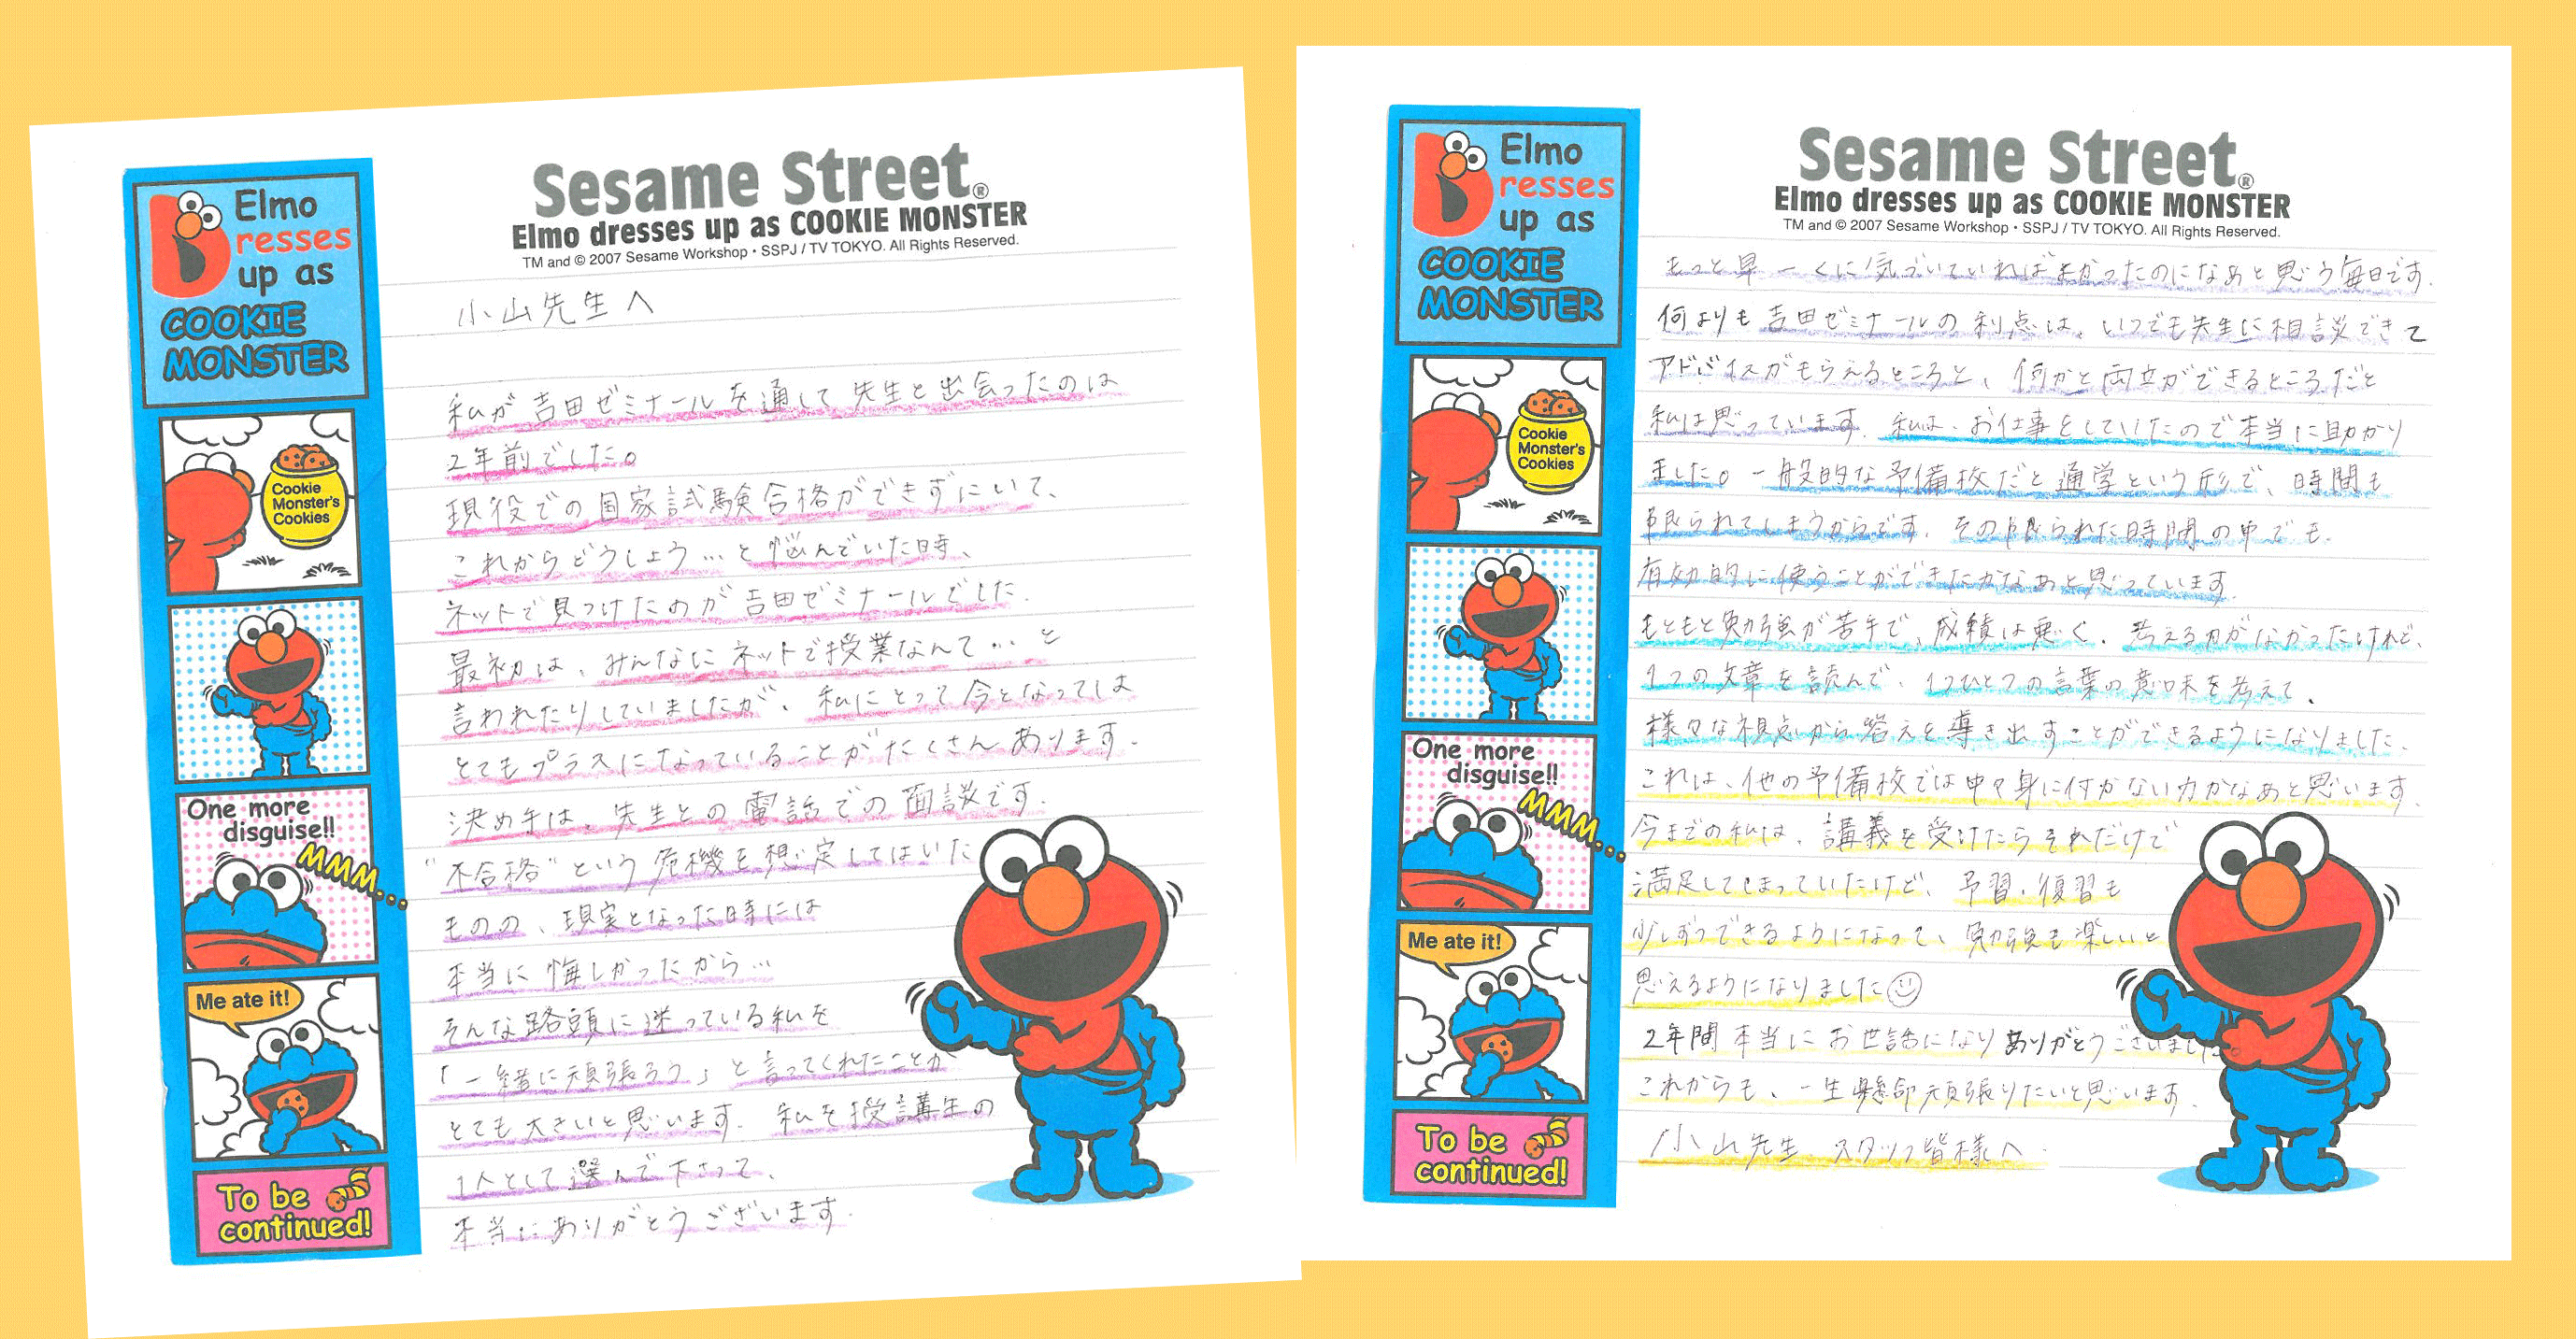 Elmo
Dresses
up as
COOKIE
MONSTER
Cookie
Monster's
Cookies
One more
disguise!!
MMM...
Me ate it!
To be
continued!
Sesame Street®
Elmo dresses up as COOKIE MONSTER
TM and © 2007 Sesame Workshop・SSPJ / TV TOKYO. All Rights Reserved.
小山先生へ
私が吉田ゼミナールを通して先生と出会ったのは
2年前でした。
現役での国家試験合格ができずにいて、
これからどうしよう…と悩んでいた時、
ネットで見つけたのが吉田ゼミナールでした.
最初は、みんなにネットで授業なんて…と
言われたりしていましたが、私にとって今となってしは
とてもプラスになっていることがたくさんあります.
決め手は、先生との電話での面談です.
"不合格"という危機を想定してはいた
ものの、現実となった時には
本当に悔しかったから…
そんな路頭に迷っている私を
「一緒に頑張ろう」と言ってくれたことが
とても大きいと思います. 私を受講生の
1人として選んで下さって、
本当にありがとうございます.
Elmo
Dresses
up as
COOKIE
MONSTER
Cookie
Monster's
Cookies
One more
disguise!!
MMM...
Me ate it!
To be
continued!
Sesame Street®
Elmo dresses up as COOKIE MONSTER
TM and © 2007 Sesame Workshop・SSPJ / TV TOKYO. All Rights Reserved.
もっと早ーくに気づいていればよかったのになあと思う毎日です.
何よりも吉田ゼミナールの利点は、いつでも先生に相談できて
アドバイスがもらえるところと、何かと両立ができるところだと
私は思っています. 私は、お仕事をしていたので本当に助かり
ました。一般的な予備校だと通学という形で、時間も
限られてしまうからです. その限られた時間の中でも.
有効的に使うことができたかなあと思っています.
もともと勉強が苦手で、成績は悪く、考える力がなかったけれど、
1つの文章を読んで、1つひとつの言葉の意味を考えて、
様々な視点から答えを導き出すことができるようになりました.
これは、他の予備校では中々身に付かない力かなあと思います.
今までの私は、講義を受けたらそれだけで
満足してしまっていたけど、予習・復習も
少しずつできるようになって、勉強も楽しいと
思えるようになりました☺
2年間本当にお世話になりありがとうございました。
これからも、一生懸命頑張りたいと思います.
小山先生 スタッフ皆様へ